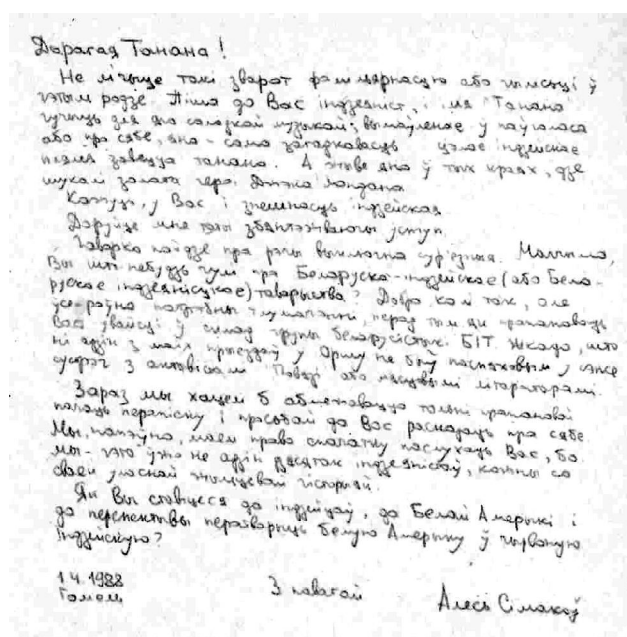 Дарагая Танана!
Не лічыце такі зварот фамільярнасцю або чымсьці ў
гэтым родзе. Піша да Вас індзеяніст, і імя "Танана"
гучыць для яго салодкай музыкай; вымаўленае ў паўголаса
або пра сябе, яно - сама загадкавасць. Цэлае індзейскае
племя завецца танана. А жыве яно ў тых краях, дзе
шукалі золата героі Джэка Лондана.
Кажуць, у Вас і знешнасць індзейская.
Даруйце мне гэты збянтэжваючы уступ.
Гаворка пойдзе пра рэчы выключна сур'ёзныя. Магчыма,
Вы што-небудзь чулі пра Беларуска-індзейскае (або Бела-
рускае індзеянісцкае) таварыства? Добра, калі так, але
ўсё роўна патрэбны тлумачэнні, перад тым як прапаноўваць
Вам увайсці ў склад групы беларусістыкі БІТ. Шкада, што
ні адзін з маіх прыездаў у Оршу не быў паспяховым у сэнсе
сустрэч з актывістамі "Повязі" або мясцовымі літаратарамі.
Зараз мы хацелі б абмежавацца толькі прапановай
пачаць перапіску і просьбай да Вас расказаць пра сябе.
Мы, напэўна, маем права спачатку паслухаць Вас, бо
мы - гэта ўжо не адзін дзесятак індзеяністаў, кожны са
сваёй уласнай жыццёвай гісторыяй.
Як Вы ставіцеся да індзейцаў, да Белай Амерыкі і
да перспектывы ператварыць белую Амерыку ў чырвоную
Індзейскую?
1.4.1988
Гомель
З павагай
Алесь Сімакоў